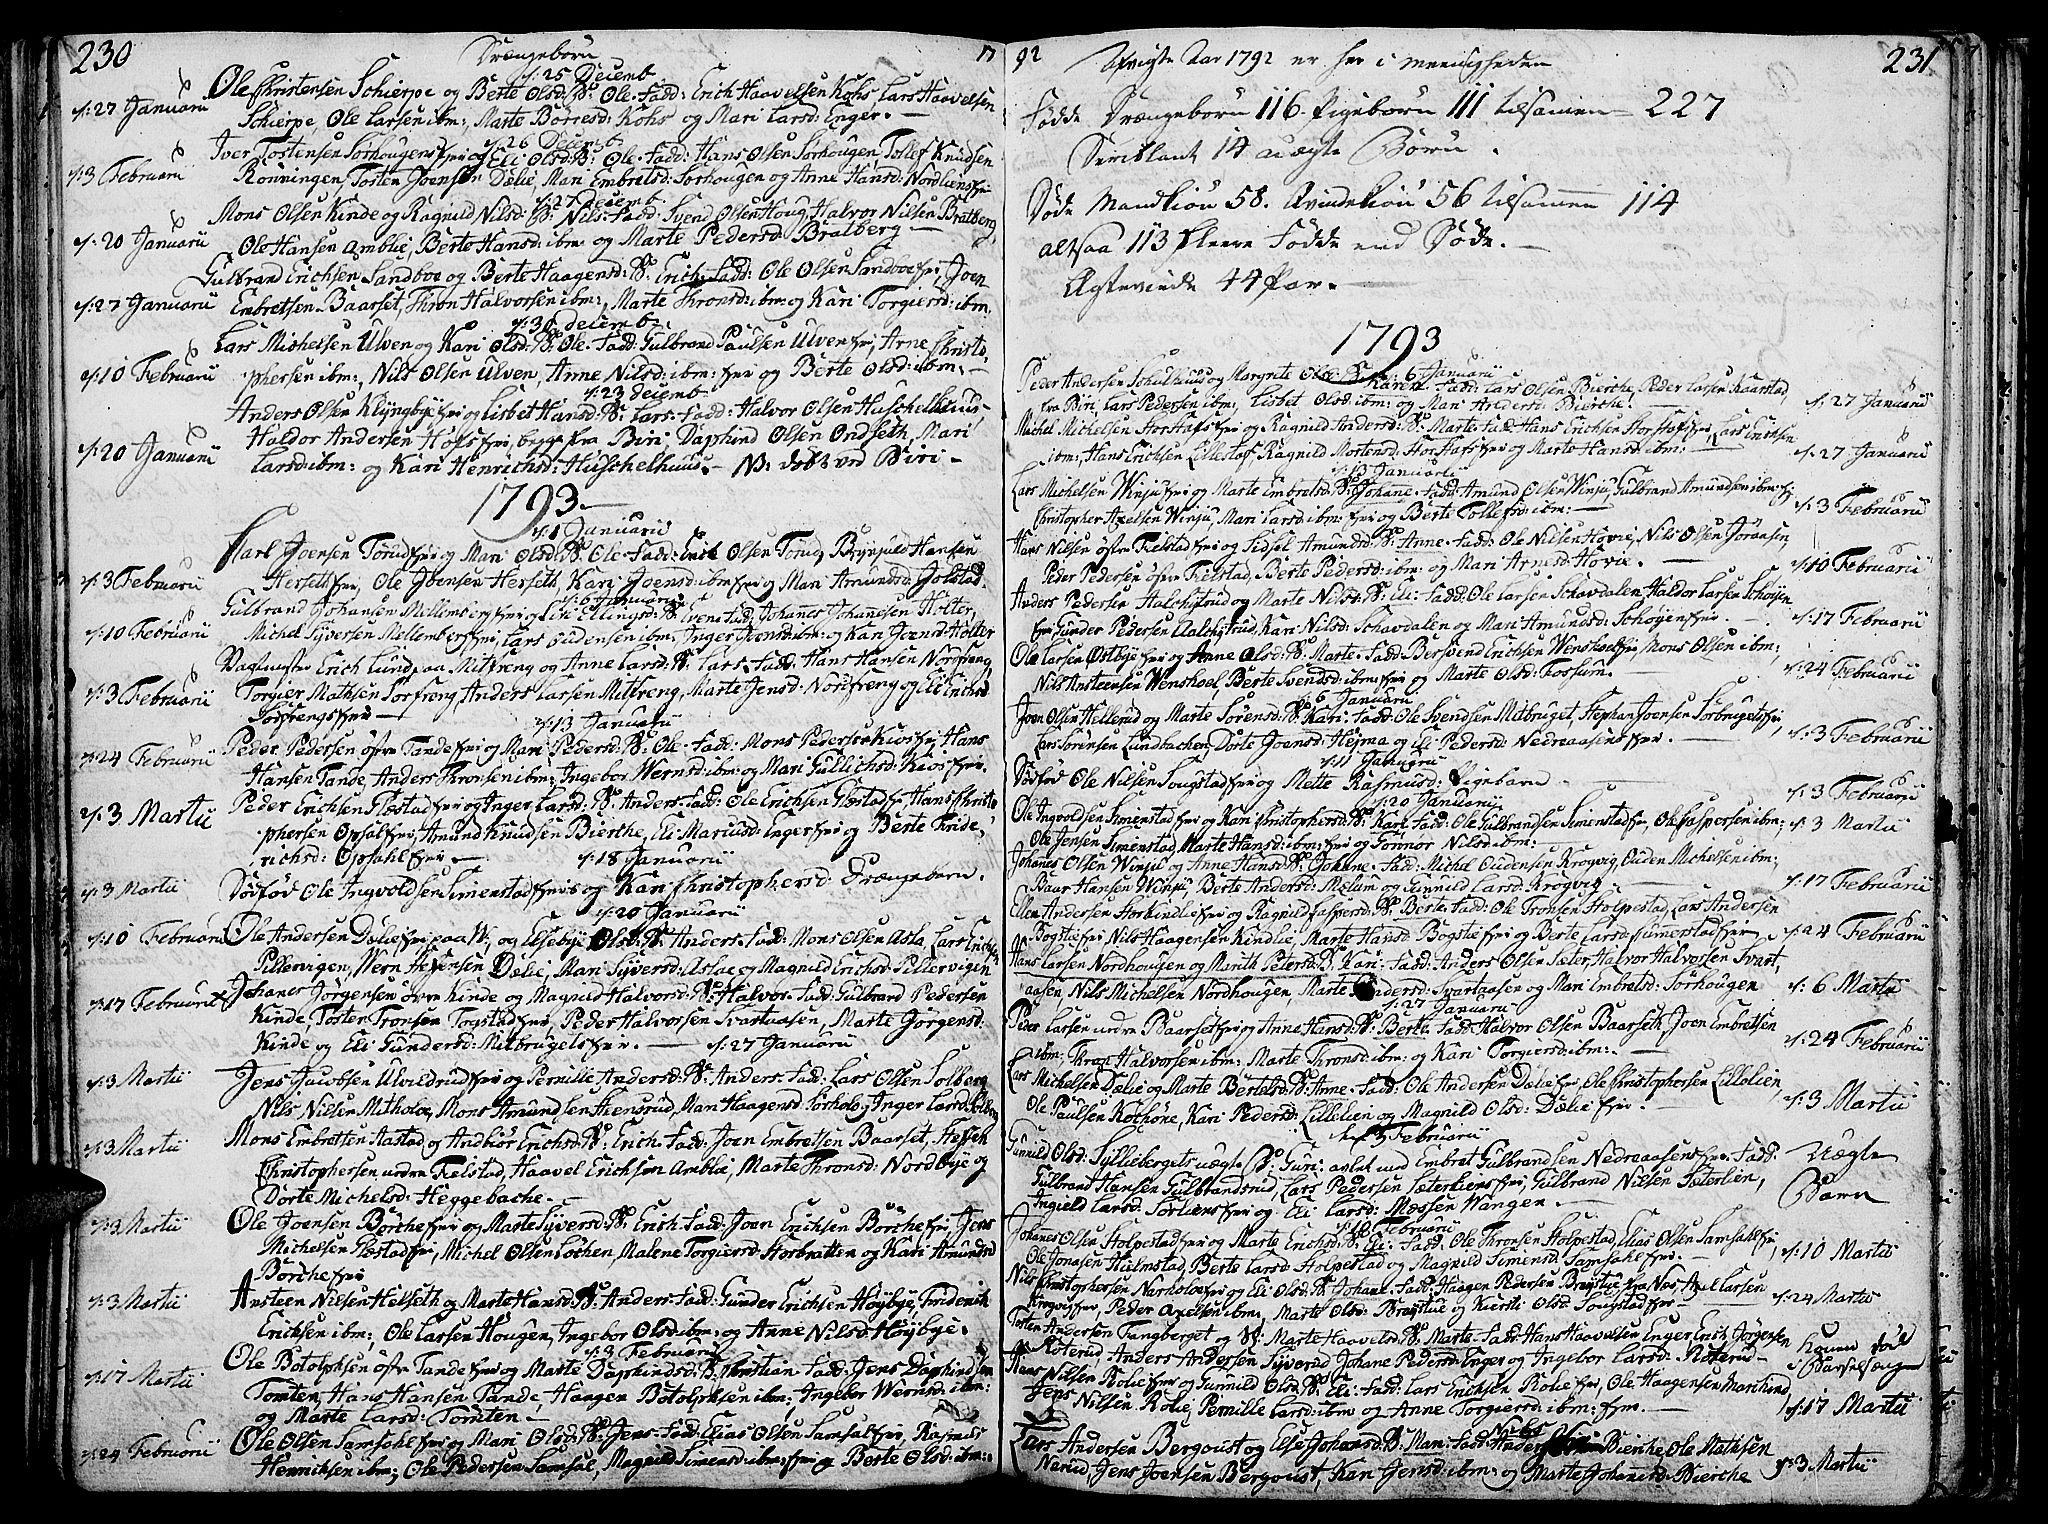 230
Drængebørn
17
d: 25 Decemb
Ole Christensen Schierpe og Berte Olsd: B: Ole. Fadd: Erich Haavelsen Kohs, Lars Haavelsen
d: 27 Januarii
Schierpe, Ole Larsen ibm:, Marte Børresd: Kohs og Mari Larsd: Enger.
d: 26 Decemb
Iver Tostensen Sørhougens og Eli Olsd: B: Ole. Fadd: Hans Olsen Sørhougen, Tollef Knudsen
d: 3 Februarii
Rønningen, Tosten Joensen Dælie, Mari Embretsd: Sørhougen og Anne Hansd: Nordliens
d: 27 Decemb
Mons Olsen Kinde og Ragnild Nilsd: B: Nils. Fadd: Svend Olsen Houg, Halvor Nilsen Bratberg
d: 20 Januarii
Ole Hansen Amblie, Berte Hansd: ibm: og Marte Pedersd: Bratberg
Gulbrand Erichsen Sandboe og Berte Haagensd: B: Erich. Fadd: Ole Olsen Sandboe, Joen
d: 27 Januarii
Embretsen Baarset, Thron Halvorsen ibm:, Marte Thronsd: ibm: og Kari Torgiersd: ibm,
Decemb
Lars Michelsen Ulven og Kari Olsd: B: Ole. Fadd: Gulbrand Paulsen Ulven, Arne Christo-
d: 10 Februarii
phersen ibm:, Nils Olsen Ulven, Anne Nilsd: ibm: og Berte Olsd: ibm:
d: 23 Decemb
Anders Olsen Klyngbye og Lisbet Hansd: B: Lars. Fadd: Halvor Olsen Huschelhuus
d: 20 Januarii
Haldor Andersen Hofs, begge fra Biri, Daphind Olsen Ondseth, Mari
Larsd: ibm: og Kari Henrichsd: Huschelhuus. NB: døbt ved Biri
1793
d: 1 Januarii
Joensen Torud og Mari Olsd: B: Ole. Fadd: Olsen Torud, Brynjuld Hansen
d: 3 Februarii
Herseth, Ole Joensen Herseth, Kari Joensd: ibm og Mari Amundsd: Jolstad
d: 6 Januarii
Gulbrand Johansen Mellemberg og Ellingsd: B: Even. Fadd: Johannes Johanesen Holter
d: 10 Februarii
Michel Syversen Mellemberg, Lars Oudensen ibm:, Inger Joensd: ibm: og Kari Joensd: Holter
Vagtmester Erich Lund paa Mitfreng og Anne Larsd: B: Lars. Fadd: Hans Hansen Nordfreng,
d: 3 Februarii
Torgier Mathsen Sørfreng, Anders Larsen Mitfreng, Marte Jensd: Nordfreng og Eli Erichsd
Sørfrengs
d: 13 Januarii
Peder Pedersen øfre Tande og Mari Pedersd: B: Ole. Fadd: Mons Pedersen Kios, Hans
d: 24 Februarii
Hansen Tande, Anders Thronsen ibm: Ingebor Wernsd: ibm: og Mari Gullichsd: Kios
Peder Erichsen Flæstad og Inger Larsd: B: Anders. Fadd: Ole Erichsen Flæstad, Hans Christo
d: 3 Martii
phersen Opsal, Amund Knudsen Bierche, Eli Mariusd: Enger og Berte Fride,
richsd: Opsahl
d: 18 Januarii
d: 3 Martii
Dødfød Ole Ingvoldsen Simenstad og Kari Christophersd: Drængebarn.
d: 20 Januarii
d: 10 Februarii
Ole Andersen Dælie paa W: og Elsebye Olsd: B: Anders. Fadd: Mons Olsen Asla, Lars Erichsen
Pillervigen, Wern Jensen Dælie, Mari Syversd: Aslae og Magnild Erichsd: Pillervigen
d: 17 Februarii
Johanes Jørgensen øvre Kinde og Magnild Halvorsd: B: Halvor. Fadd: Gulbrand Pedersen
Kinde, Tosten Tronsen Togstad, Peder Halvorsen Svartaasen, Marte Jørgensd:
Kinde og Eli Gundersd: Mitbrugets
d: 27 Januarii
d: 3 Martii
Jens Jacobsen Ulvildrud og Pernille Andersd: B: Anders. Fadd: Lars Olsen Solberg
Nils Nilsen Mitholoe, Mons Amundsen Steensrud, Mari Haagensd: Sørholo, Inger Larsd: Solberg
d: 3 Martii
Mons Embretsen Aastad og Andbiør Erichsd: B: Erich. Fadd: Joen Embretsen Baarset, Steffen
Christophersen nedre Fielstad, Haavel Erichsen Amblie, Marte Thronsd: Nordbye og
Dorte Michelsd: Heggebache.
d: 3 Martii
Ole Joensen Børche og Marte Syversd: B: Erich. Fadd: Joen Erichsen Børche, Jens
Michelsen Flæstad, Michel Olsen Løchen, Malene Torgiersd: Storbratten og Kari Amundsd
Børche
d: 3 Martii
Ansteen Nilsen Helseth og Marte Hansd: B: Anders. Fadd: Gunder Erichsen Høybye, Friderich
Erichsen ibm:, Ole Larsen Hougen, Ingebor Olsd: ibm: og Anne Nilsd: Høybye.
d: 3 Februarii
Ole Botolphsen øfre Tande og Marte Daphindsd: B: Christian. Fadd: Jens Daphindsen
d: 17 Martii
Tomten, Hans Hansen Tande, Haagen Botolphsen ibm:, Ingebor Wernsd: ibm:
og Marte Larsd: Tomten
d: 24 Februarii
Ole Olsen Samsahl og Mari Olsd: B: Jens. Fadd: Elias Olsen Samsal, Rasmus
Henriksen ibm:, Ole Pedersen Samsal, Magnild Simensd: ibm: og Berte Olsd: ibm:
92
231
Afvigte Aar 1792 er her i meenigheden
Fødde Drængebørn 116. Pigebørn 111 tilsamen 227
Deriblant 14 uægte Børn.
Døde Mandkiøn 58. Qvindekiøn 56 tilsamen 114
altsaa 113 fleere Fødde end Døde.
Ægteviede 44 Par.
1793
d: 6 Januarii
Peder Andersen Scholhuus og Margrete Olsd: B: Karen. Fadd: Lars Olsen Bierche, Peder Larsen Kaarstad,
fra Biri, Lars Pedersen ibm:, Lisbet Olsd: ibm: og Mari Andersd: Bierche.
d: 27 Januarii
Michel Michelsen Storstafs og Ragnild Andersd: B: Marte. Fadd: Hans Erichsen Storstaf, Lars Erichsen
ibm:, Hans Erichsen Lillestaf, Ragnild Mortensd: Storstafs og Marte Hansd: ibm:
d: 27 Januarii
d: 13 Januarii
Lars Michelsen Winju og Marte Embretsd: B: Johane. Fadd: Amund Olsen Winju, Gulbrand Amundsen ibm:
Christopher Axelsen Winju, Mari Larsd: ibm: og Berte Tollefsd: ibm:
d: 3 Februarii
Hans Nilsen øfre Fielstad og Sidsel Amundsd: B: Anne. Fadd: Ole Nilsen Hovie, Nils Olsen Joraasen,
Peder Pedersen øfre Fielstad, Berte Pedersd: ibm: og Mari Arnesd: Hovie.
d: 10 Februarii
Anders Pedersen Halchestrud og Marte Nilsd: B: Eli: Fadd: Ole Larsen Schavdalen, Haldor Larsen Schøyen
Gunder Pedersen Aalchestrud, Kari Nilsd: Schavdalen og Mari Amundsd: Schøyen.
d: 17 Februarii
Ole Larsen Østbye og Anne Olsd: B: Marte. Fadd: Bersvend Erichsen Wenskoel, Mons Olsen ibm:,
Nils Ansteensen Wenskoel, Berte Svendsd: ibm: og Marte Olsd: Fossum.
d: 24 Februarii
d: 6 Januarii
Joen Olsen Hellerud og Marte Sørensd: B: Kari: Fadd: Ole Svendsen Mitbruget, Stephan Joensen Sørbrugets,
Lars Sørensen Lundbachen, Dorte Joensd: Hejma og Eli Pedersd: Nedreaasens.
d: 3 Februarii
d: 11 Januarii
Dødfød Ole Nilsen Songstad og Mette Rasmusd: Pigebarn
d: 3 Februarii
d: 20 Januarii
Ole Ingvoldsen Simenstad og Kari Christophersd: B: Kari. Fadd: Ole Gulbrandsen Simenstad, Ole Caspersen ibm:
Ole Jensen Simenstad, Marte Hansd: ibm: og Gonnor Nilsd: ibm:
d: 3 Martii
Johanes Olsen Winju og Anne Hansd: B: Johane. Fadd: Michel Oudensen Krogvig, Ouden Michelsen ibm:
Baar Hansen Winju, Berte Andersd: Mælum og Gunnild Larsd: Krogvig
d: 17 Februarii
Ellen Andersen Storkindlie og Ragnild Caspersd: B: Berte. Fadd: Ole Tronsen Stolpestad, Lars Andersen
Bogstie, Nils Haagensen Kindlie, Marte Hansd: Bogstie og Berte Larsd: Simenstad
d: 24 Februarii
Hans Larsen Nordhougen og Marith Petersd: B: Kari. Fadd: Anders Olsen Sæter, Halvor Halvorsen Svart,
aasen, Nils Michelsen Nordhougen, Marte Andersd: Svartaasen og Mari Embretsd: Sørhougen
d: 6 Martii
d: 27 Januarii
Peder Larsen nedre Baarset og Anne Hansd: B: Berte. Fadd: Halvor Olsen Baarseth, Joen Embretsen
ibm:, Thron Halvorsen ibm:, Marte Thronsd: ibm: og Kari Torgiersd: ibm:
d: 24 Februarii
Lars Michelsen Dælie og Marte Bertelsd: B: Anne. Fadd: Ole Andersen Dælie, Ole Christophersen Lillelien,
Ole Paulsen Kochone, Kari Pedersd: Lillelien og Magnild Olsd: Dælie.
d: 3 Martii
Februarii
Gunnild Olsd: Sylliebergets uægte B: Guri. avlet med Embret Gulbrandsen Nedreaasens. Fadd:
Gulbrand Hansen Gulbrandsrud, Lars Pedersen Sæterliens, Gulbrand Nilsen Sæterlien,
Ingield Larsd: Sørliens og Eli Larsd: Mæssen Wangen.
Uægte
Barn
d: 10 Februarii
Johanes Olsen Stolpestad og Marte Erichsd: B: Eli. Fadd: Ole Thronsen Stolpestad, Elias Olsen Samsahl,
Ole Jonasen Hielmstad, Berte Larsd: Stolpestad og Magnild Simensd: Samsahl.
d: 10 Martii
Nils Christophersen Narholoe og Eli Olsd: B: Johane. Fadd: Haagen Pedersen Brøstue fra Næs, Axel Larsen
Krogvig, Peder Axelsen ibm:, Marte Olsd: Brøstue og Kiersti Olsd: Songstad
d: 24 Martii
Tosten Andersen Fangberget og B: Marte Haavelsd: B: Marte. Fadd: Hans Haavelsen Enger, Erich Jørgensen
Roterud, Anders Andersen Syverud, Johane Pedersd: Enger og Ingebor Larsd: Roterud
konen død
i Barselsengen
Hans Nilsen Rolie og Gunnild Olsd: B: Eli: Fadd: Lars Erichsen Rolie, Ole Haagensen Marchind
Jens Nilsen Rolie, Pernille Larsd: ibm og Anne Torgiersd: ibm:
d: 17 Martii
Lars Andersen Bergqvist og Else Johansd: B: Mari: Fadd: Anders Bierche, Ole Mathsen
Narud, Jens Joensen Bergqvist, Kari Jensd: ibm: og Marte Johansd: Bierche
d: 3 Martii